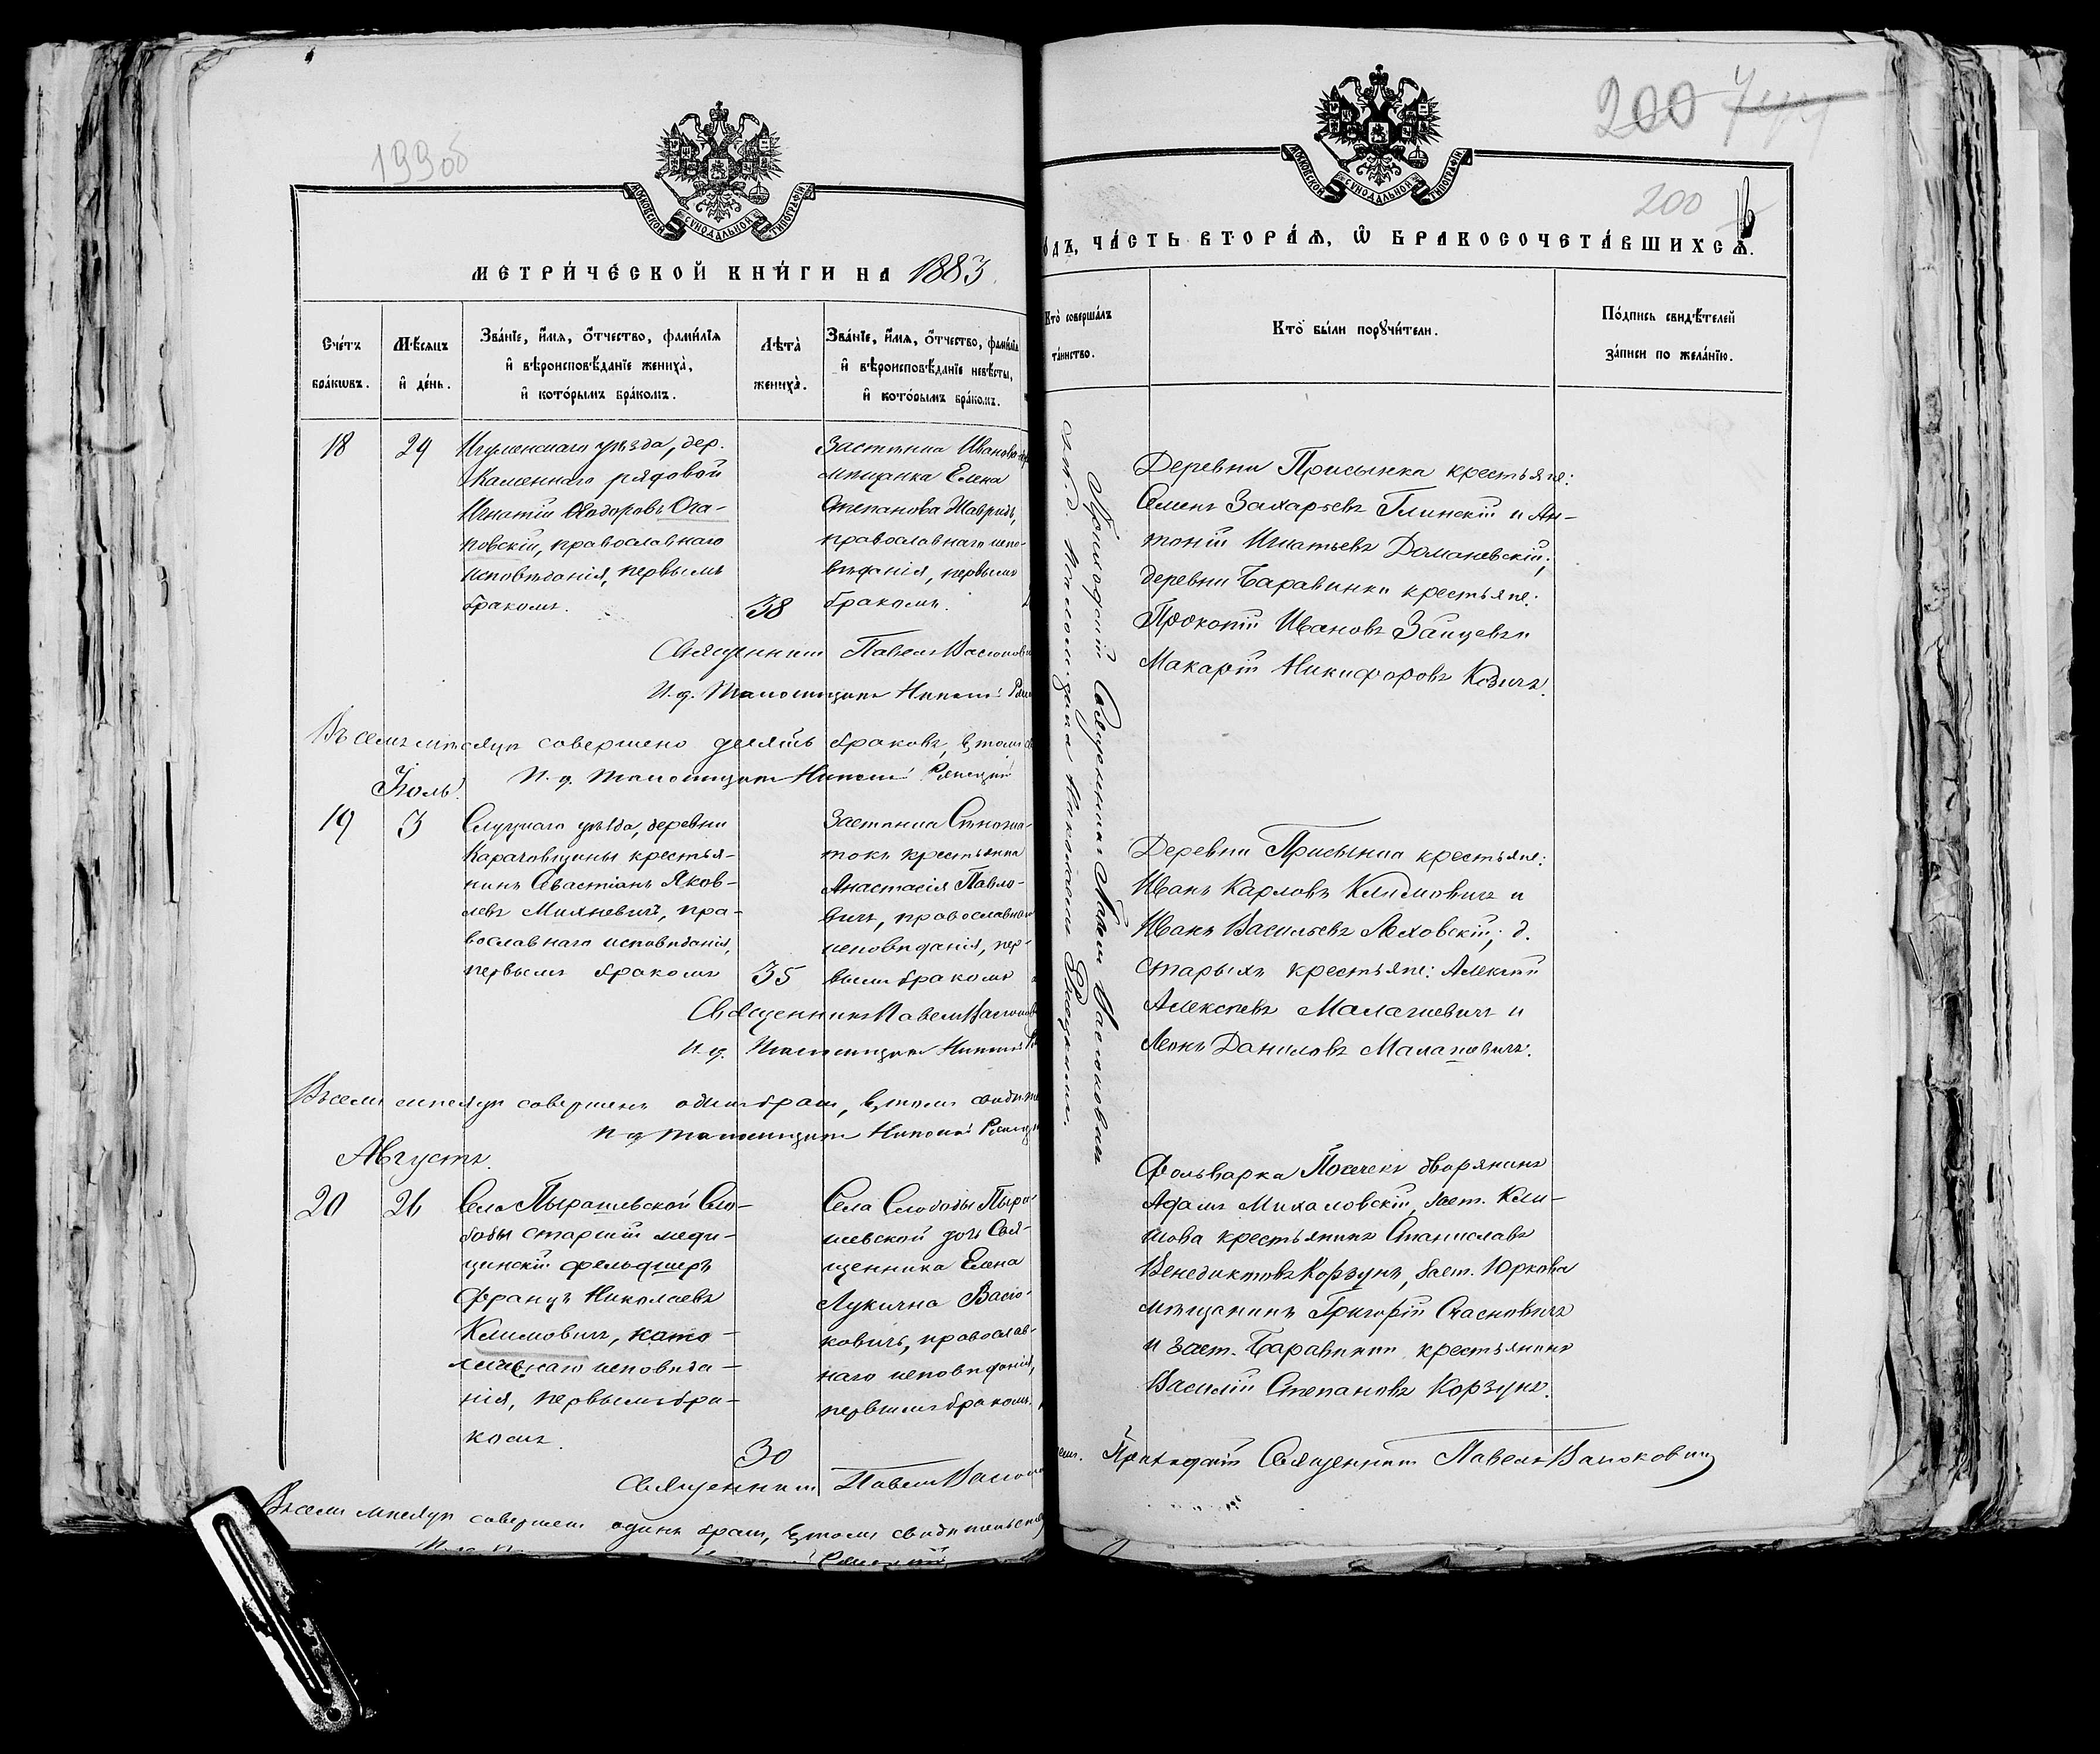 199 об
МОСКОВСКОЙ СѴНОДАЛЬНОЙ ТИПОГРАФІИ
МЕТРИЧЕСКОЙ КНИГИ НА 1883
Счетъ браковъ.
Мѣсяцъ и день.
Званіе, имя, отчество, фамилія
и вѣроисповѣданіе жениха,
и которымъ бракомъ.
Лѣта жениха.
Званіе, имя, отчество, фамилія
и вѣроисповѣданіе невѣсты,
и которымъ бракомъ.
18
24
Игуменскаго уѣзда, дер.
Каменнаго рядовой
Игнатій Ѳеодоровъ
православнаго
исповѣданія, первымъ
бракомъ.
38
Застѣнка
мѣщанка Елена
Степанова
православнаго испо-
вѣданія, первымъ
бракомъ.
Священникъ Павелъ
И. д. Псаломщика Николай
Въ семъ мѣсяцѣ совершено девять браковъ, въ томъ
И. д. Псаломщика Николай
Іюль.
19
3
Слуцкаго уѣзда, деревни
Карачовщины крестья-
нинъ Севастіанъ Яков-
левъ Михневичъ, пра-
вославнаго исповѣданія,
первымъ бракомъ
35
Застѣнка Сѣножа-
токъ крестьянка
Анастасія Павло-
вичъ, православнаго
исповѣданія, пер-
вымъ бракомъ
Священникъ Павелъ
И. д. Псаломщика Николай
Въ семъ мѣсяцѣ совершенъ одинъ бракъ, въ томъ
И. д. Псаломщика Николай
Августъ.
20
26
Села Пырашевской Сло-
боды старшій меди-
цинскій фельдшеръ
Францъ Николаевъ
Климовичъ, като-
лическаго исповѣда-
нія, первымъ бра-
комъ.
30
Села Слободы Пыра-
шевской дочь Свя-
щенника Елена
Лукична Васю-
ковичъ, православ-
наго исповѣданія,
первымъ бракомъ.
Священникъ Павелъ
Въ семъ мѣсяцѣ совершенъ одинъ бракъ, въ томъ
200
МОСКОВСКОЙ СѴНОДАЛЬНОЙ ТИПОГРАФІИ
200
ОДЪ, ЧАСТЬ ВТОРАЯ, Ѡ БРАКОСОЧЕТАВШИХСЯ.
Кто совершалъ таинство.
Кто были поручители.
Подпись свидѣтелей
записи по желанію.
Приходскій Священникъ Павелъ Васюковичъ
и. д. Псаломщика Николаемъ
Деревни Присынка крестьяне:
Семенъ Захарьевъ Глинскій и Ан-
тоній Игнатьевъ Домановскій;
деревни Баравинки крестьяне:
Прокопій Ивановъ Зайцевъ и
Макарій Никифоровъ
Деревни Присынка крестьяне:
Иванъ Карловъ Климовичъ и
Иванъ Васильевъ Ляховскій; д.
Старыхъ крестьяне: Алексѣй
Алексѣевъ Малашевичъ и
Леонъ Даниловъ Малашевичъ.
Фольварка дворянинъ
Адамъ Михаловскій, заст. Кли-
мова крестьянинъ Станиславъ
Венедиктовъ Корзунъ, заст. Юркова
мѣщанинъ Григорій Счасновичъ
и заст. Баравинки крестьянинъ
Василій Степановъ Корзунъ.
Приходскій Священникъ Павелъ Васюковичъ